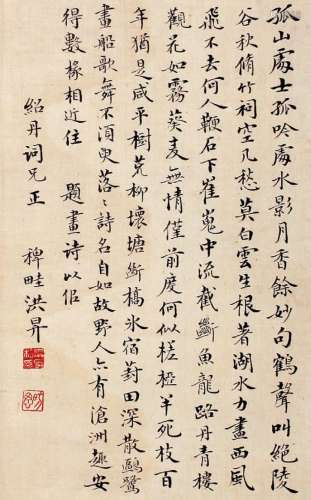 孤山處士孤吟處水影月香餘妙句鶴聲叫絕陵
谷秋脩竹祠空凡愁莫白雲生根著湖水力盡西風
飛不去何人鞭石下崔嵬中流截斷魚龍路丹青樓
觀花如霧葵麥無情僅前度何似槎枒半死枝百
年猶是咸平樹荒柳壞塘斷橋氷宿葑田深散鷗鷺
畫船歌舞不須臾落落詩名自如故野人亦有滄洲趣安
得數椽相近住 題畫詩以侶
紹丹詞兄正
稗畦洪昇